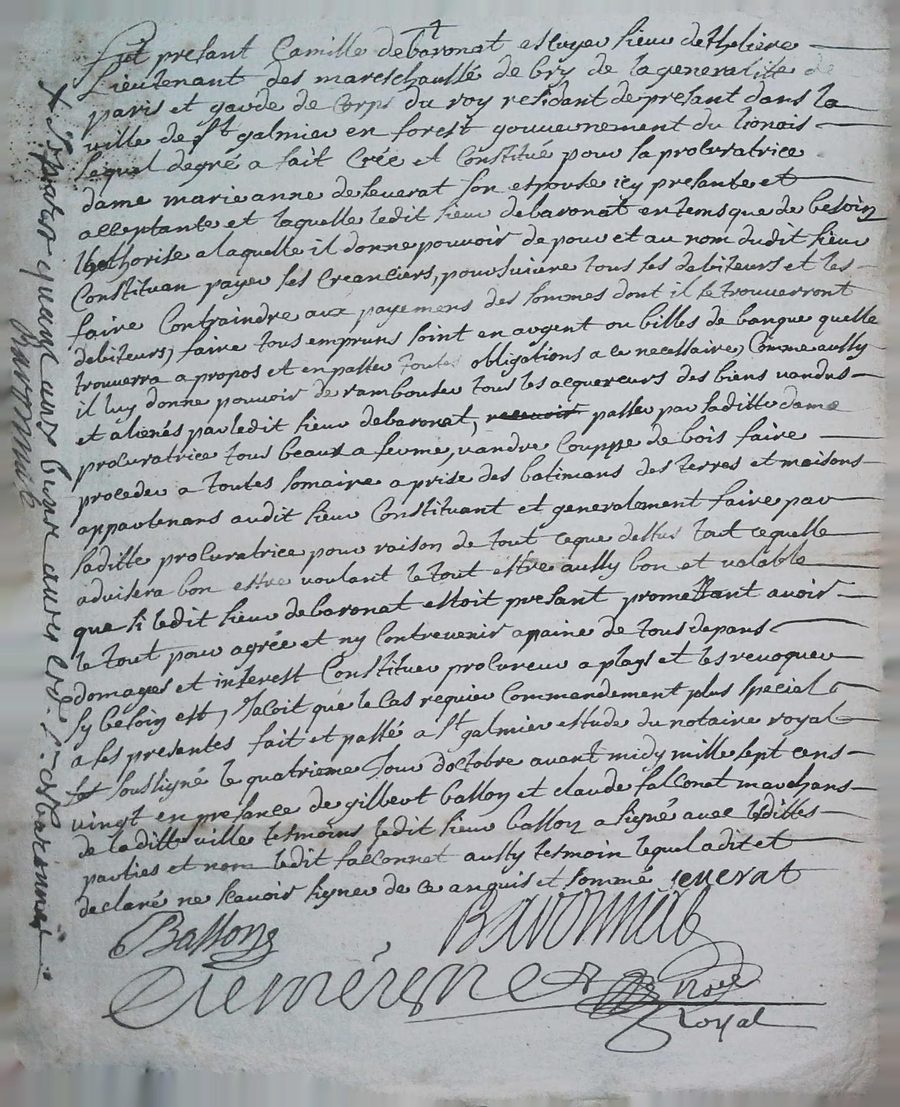 fut presant Camille debaronat escuyer sieur detheliere
Lieutenant des mareschaussé de bry de lageneralite de
paris et garde de Corps du roy residant depresant dans la
ville de st galmier en forest gouvuernement du lionois
lequel degré a fait Crée et Constitué pour sa procuratrice
dame marieanne de seuerat son espouse icy presante et
acceptante et laquelle ledit sieur debaronat entemsque de besoin
lhothorise alaquelle il donnepouvoir de pour et au nom dudit sieur
Constituan payer les Creanciers, poursuivre tous les debiteurs et les
faire Contraindre aux payemens des sommes dont il se trouverront
debiteurs, faire tous empruns soint en argent ou billes de banque quelle
trouverra apropos et enpasser toutes obligations ace necessaire, Comme aussy
il luy donne pouvoir de rambourser tous les acquereurs des biens vandus
et alienés parledit sieur debaronat, passer par saditte dame
procuratrice tous beaux aferme, vandre Couppe de bois faire
proceder a toutes somaire aprise des batimans des terres et maisons
appartenans audit sieur Constituant et generalement faire par
saditte procuratrice pour raison de tout ceque dessus tout cequelle
advisera bon estre voulant letout estre aussy bon et valable
que si ledit sieur debaronat estoit presant promettant avoir
le tout pour agrée et ny Contrevenir appaine de tous depans
domages et interest Constituer procureur aplays et les revoquer
sy besoin est, Jacoit que le Cas requier Commandement plus special
a ses presentes fait et passé a st galmier estude du notaire royal
soussigné le quatrieme Jour doctobre avant midy mille sept cens
vingt en presance de gilbert basson et claude falconat marchans
de laditte ville tesmoins ledit sieur basson a signé avec lesdittes
parties et non ledit falconnet aussy tesmoin lequel adit et
declaré ne scavoir signer de ce anquis et sommé seuerat
Basson Baronnat
royal